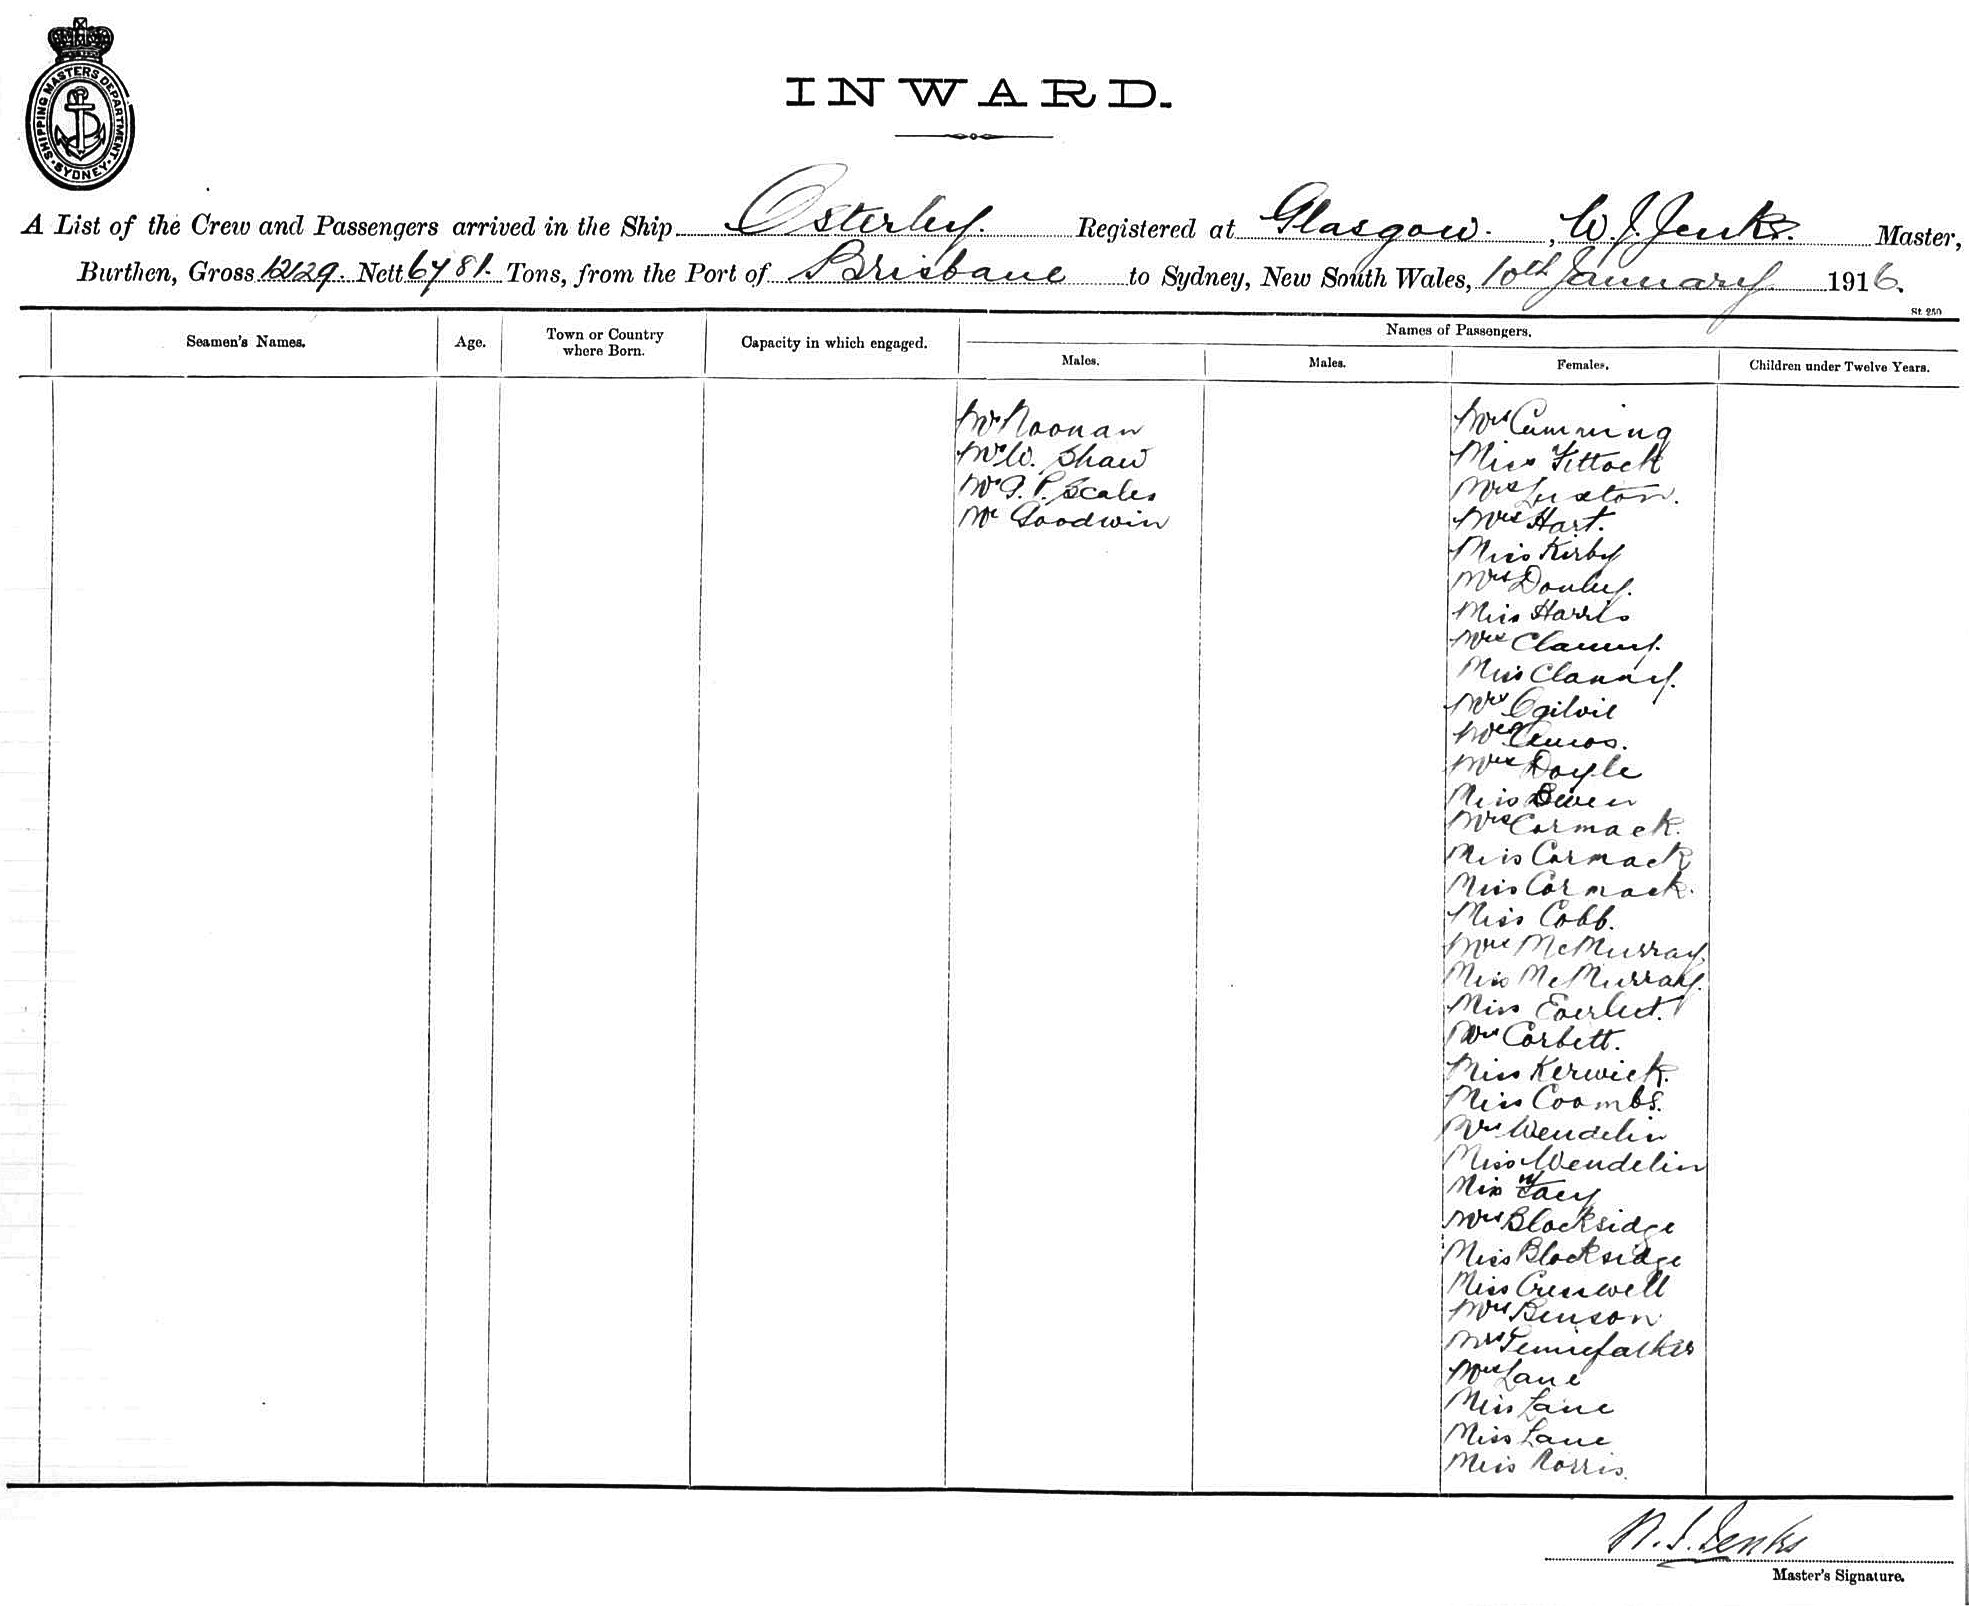 SHIPPING MASTERS DEPARTMENT · SYDNEY ·
INWARD.
A List of the Crew and Passengers arrived in the Ship Osterley. Registered at Glasgow., W. J. Jenks. Master,
Burthen, Gross 12129. Nett 6781. Tons, from the Port of Brisbane to Sydney, New South Wales, 10th January 1916.
St. 250
Seamen's Names.
Age.
Town or Country
where Born.
Capacity in which engaged.
Names of Passengers.
Males.
Males.
Females.
Children under Twelve Years.
Mr Noonan
Mr W. Shaw
Mr P. Scales
Mr Goodwin
Mrs Cumming
Miss Fittock
Mrs Luxton.
Mrs Hart.
Miss Kirby
Mrs Donley.
Miss Harris
Mrs Clanny.
Miss Clanny.
Mrs Ogilvie
Mrs Amos.
Mrs Doyle
Miss
Mrs Cormack.
Miss Cormack
Miss Cormack.
Miss Cobb.
Mrs McMurray.
Miss McMurray.
Miss
Mrs Corbett.
Miss Kerwick.
Miss Coombs.
Mrs Wendelin
Miss Wendelin
Miss
Mrs Blocksidge
Miss Blocksidge
Miss Cresswell
Mrs Benson
Mrs
Mrs Lane
Miss Lane
Miss Lane
Miss Norris.
W. J. Jenks
Master's Signature.